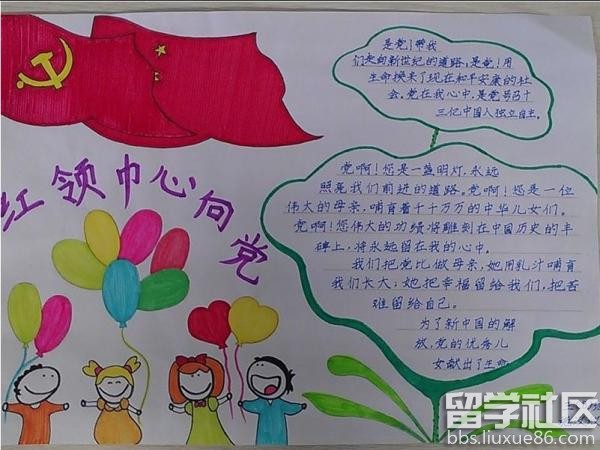 红领巾心向党
是党!带我
们走向新世纪的道路,是党!用
生命换来了现在和平安康的社
会。党在我心中,是党号召十
三亿中国人独立自主。
党啊!您是一盏明灯,永远
照亮我们前进的道路。党啊!您是一位
伟大的母亲,哺育着千千万万的中华儿女们。
党啊!您伟大的功绩将雕刻在中国历史的丰
碑上,将永远留在我的心中。
我们把党比做母亲,她用乳汁哺育
我们长大,她把幸福留给我们,把苦
难留给自己。
为了新中国的解
放,党的优秀儿
女献出了生命
留学社区
bbs.liuxue86.com